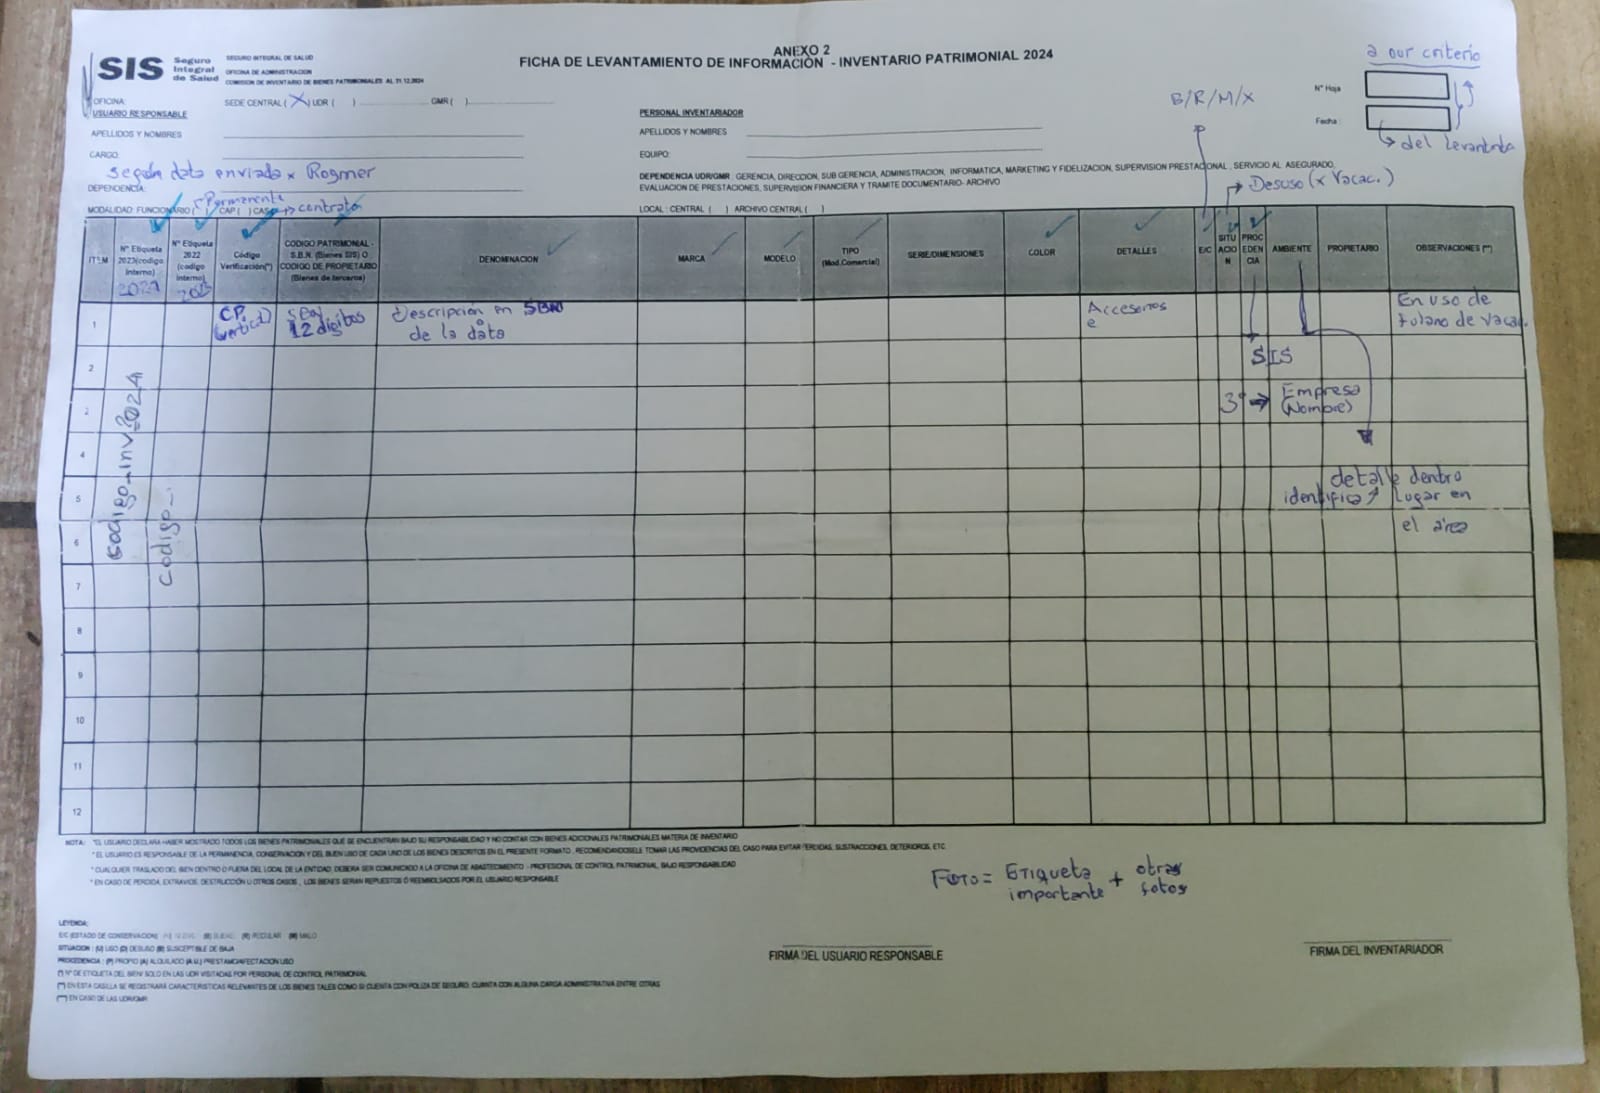 SIS Seguro Integral de Salud
SEGURO INTEGRAL DE SALUD
OFICINA DE ADMINISTRACION
COMISION DE INVENTARIO DE BIENES PATRIMONIALES AL 31.12.2024
ANEXO 2
FICHA DE LEVANTAMIENTO DE INFORMACIÓN - INVENTARIO PATRIMONIAL 2024
a our criterio
N° Hoja
Fecha :
del levantmto
B/R/M/X
OFICINA: SEDE CENTRAL ( X ) UDR ( ) GMR ( )
USUARIO RESPONSABLE
PERSONAL INVENTARIADOR
APELLIDOS Y NOMBRES
APELLIDOS Y NOMBRES
CARGO:
EQUIPO:
según data enviada x Rogmer
DEPENDENCIA:
DEPENDENCIA UDR/GMR: GERENCIA, DIRECCION, SUB GERENCIA, ADMINISTRACION, INFORMATICA, MARKETING Y FIDELIZACION, SUPERVISION PRESTACIONAL, SERVICIO AL ASEGURADO,
EVALUACION DE PRESTACIONES, SUPERVISION FINANCIERA Y TRAMITE DOCUMENTARIO- ARCHIVO
Desuso (x Vacac.)
Permanente
MODALIDAD: FUNCIONARIO ( ) CAP ( ) CAS → contrato
LOCAL : CENTRAL ( ) ARCHIVO CENTRAL ( )
ITEM
N° Etiqueta 2023(codigo interno)
2024
N° Etiqueta 2022 (codigo interno)
2023
Código Verificación(*)
CODIGO PATRIMONIAL - S.B.N. (Bienes SIS) O CODIGO DE PROPIETARIO (Bienes de terceros)
DENOMINACION
MARCA
MODELO
TIPO (Mod.Comercial)
SERIE/DIMENSIONES
COLOR
DETALLES
E/C
SITUACION
PROCEDENCIA
AMBIENTE
PROPIETARIO
OBSERVACIONES (**)
1
CP.
12 digitos
Descripción en SBN
o
de la data
Accesorios
e
En uso de
fulano de vacac.
2
SIS
3
3° → Empresa
(Nombre)
4
5
detalle dentro
identifica lugar en
el área
6
codigo_inv_2024
codigo_
7
8
9
10
11
12
NOTA: *EL USUARIO DECLARA HABER MOSTRADO TODOS LOS BIENES PATRIMONIALES QUE SE ENCUENTRAN BAJO SU RESPONSABILIDAD Y NO CONTAR CON BIENES ADICIONALES PATRIMONIALES MATERIA DE INVENTARIO
* EL USUARIO ES RESPONSABLE DE LA PERMANENCIA, CONSERVACION Y DEL BUEN USO DE CADA UNO DE LOS BIENES DESCRITOS EN EL PRESENTE FORMATO, RECOMENDANDOSELE TOMAR LAS PROVIDENCIAS DEL CASO PARA EVITAR PERDIDAS, SUSTRACCIONES, DETERIOROS, ETC.
* CUALQUIER TRASLADO DEL BIEN DENTRO O FUERA DEL LOCAL DE LA ENTIDAD, DEBERA SER COMUNICADO A LA OFICINA DE ABASTECIMIENTO - PROFESIONAL DE CONTROL PATRIMONIAL, BAJO RESPONSABILIDAD
* EN CASO DE PERDIDA, EXTRAVIOS, DESTRUCCIÓN U OTROS CASOS, LOS BIENES SERAN REPUESTOS Ó REEMBOLSADOS POR EL USUARIO RESPONSABLE
Foto = Etiqueta importante + otras fotos
LEYENDA:
E/C (ESTADO DE CONSERVACION): (N) NUEVO (B) BUENO (R) REGULAR (M) MALO
SITUACION : (U) USO (D) DESUSO (B) SUSCEPTIBLE DE BAJA
PROCEDENCIA : (P) PROPIO (A) ALQUILADO (A.U.) PRESTAMO/AFECTACION USO
(*) N° DE ETIQUETA DEL BIEN/ SOLO EN LAS UDR VISITADAS POR PERSONAL DE CONTROL PATRIMONIAL
(**) EN ESTA CASILLA SE REGISTRARÁ CARACTERISTICAS RELEVANTES DE LOS BIENES TALES COMO SI CUENTA CON POLIZA DE SEGURO, CUENTA CON ALGUNA CARGA ADMINISTRATIVA ENTRE OTRAS
(***) EN CASO DE LAS UDR/GMR
FIRMA DEL USUARIO RESPONSABLE
FIRMA DEL INVENTARIADOR